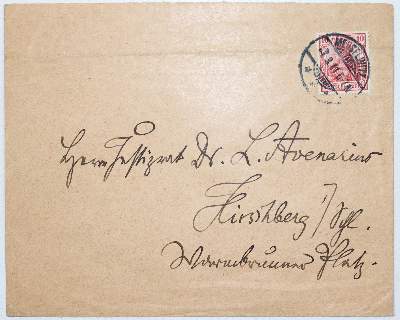 10
Herrn Justizrat Dr. L. Avenarius
Hirschberg i/Schl.
Warmbrunner Platz.